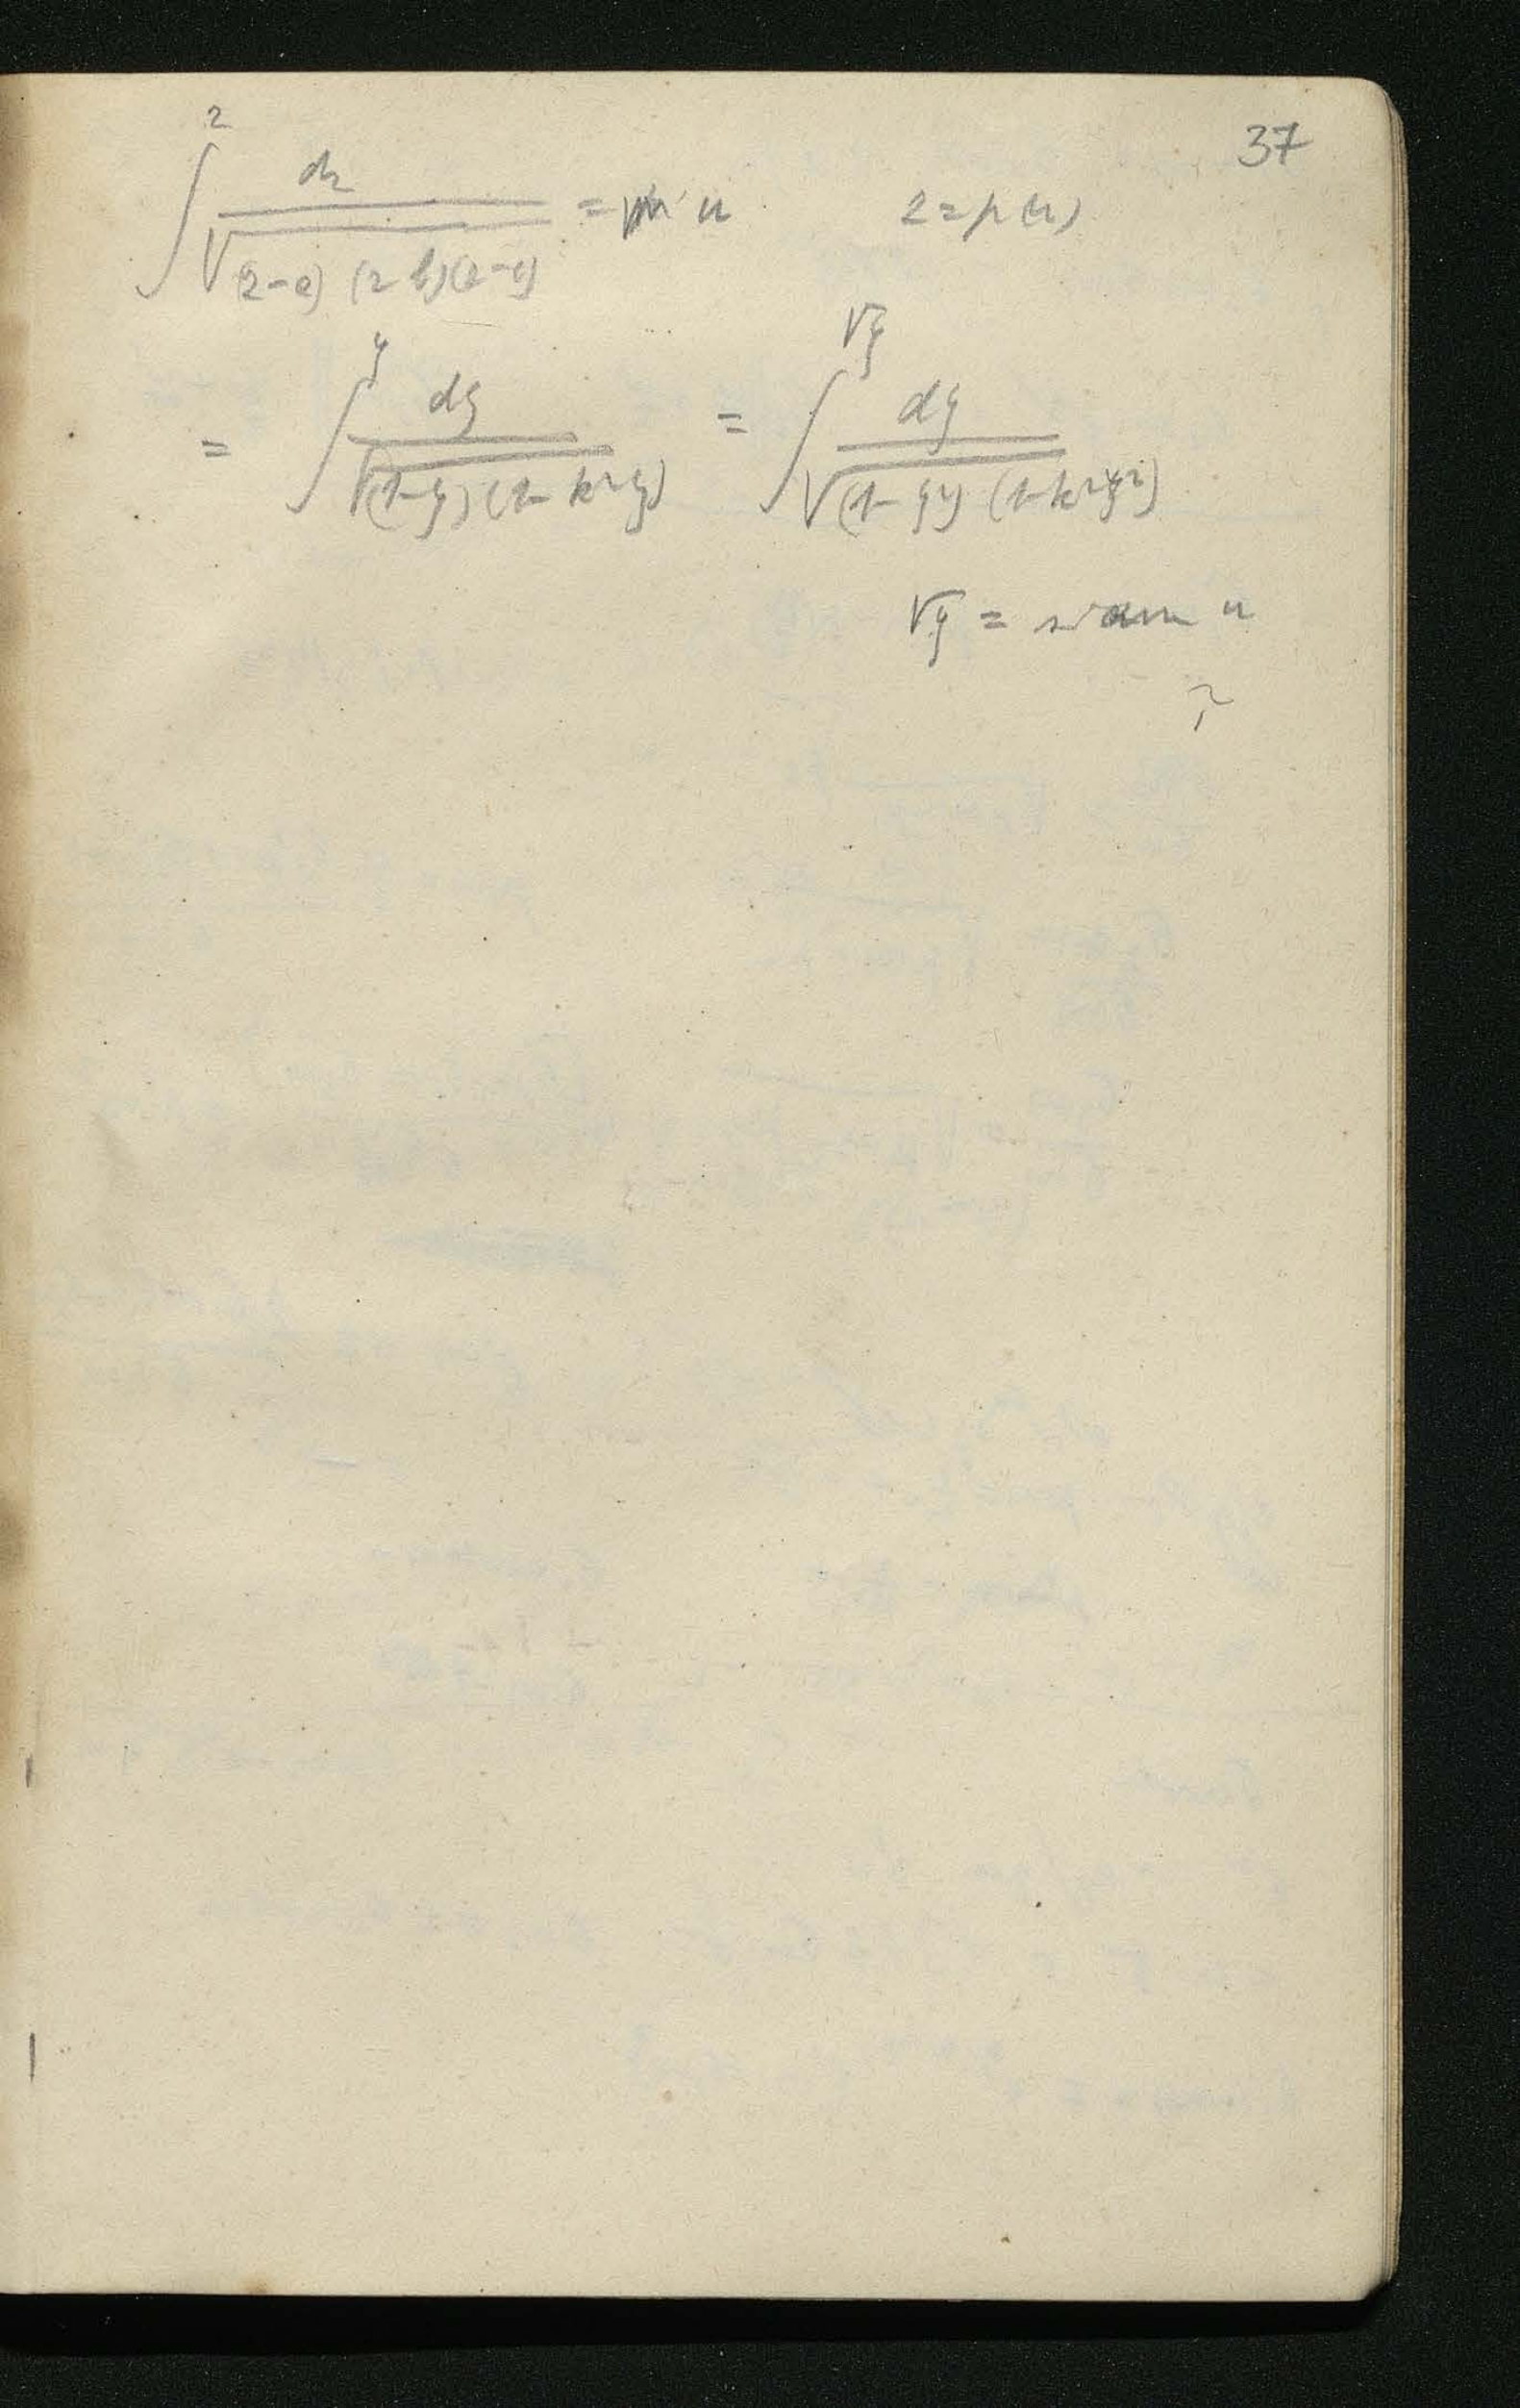 37
∫^z dz / √(z-e)(z b)(z-c) = u z = p(u)
= ∫^y dy / √(1-y)(1-k²y) = ∫^√y dy / √(1-y²)(1-k²y²)
√y = sin am u
?